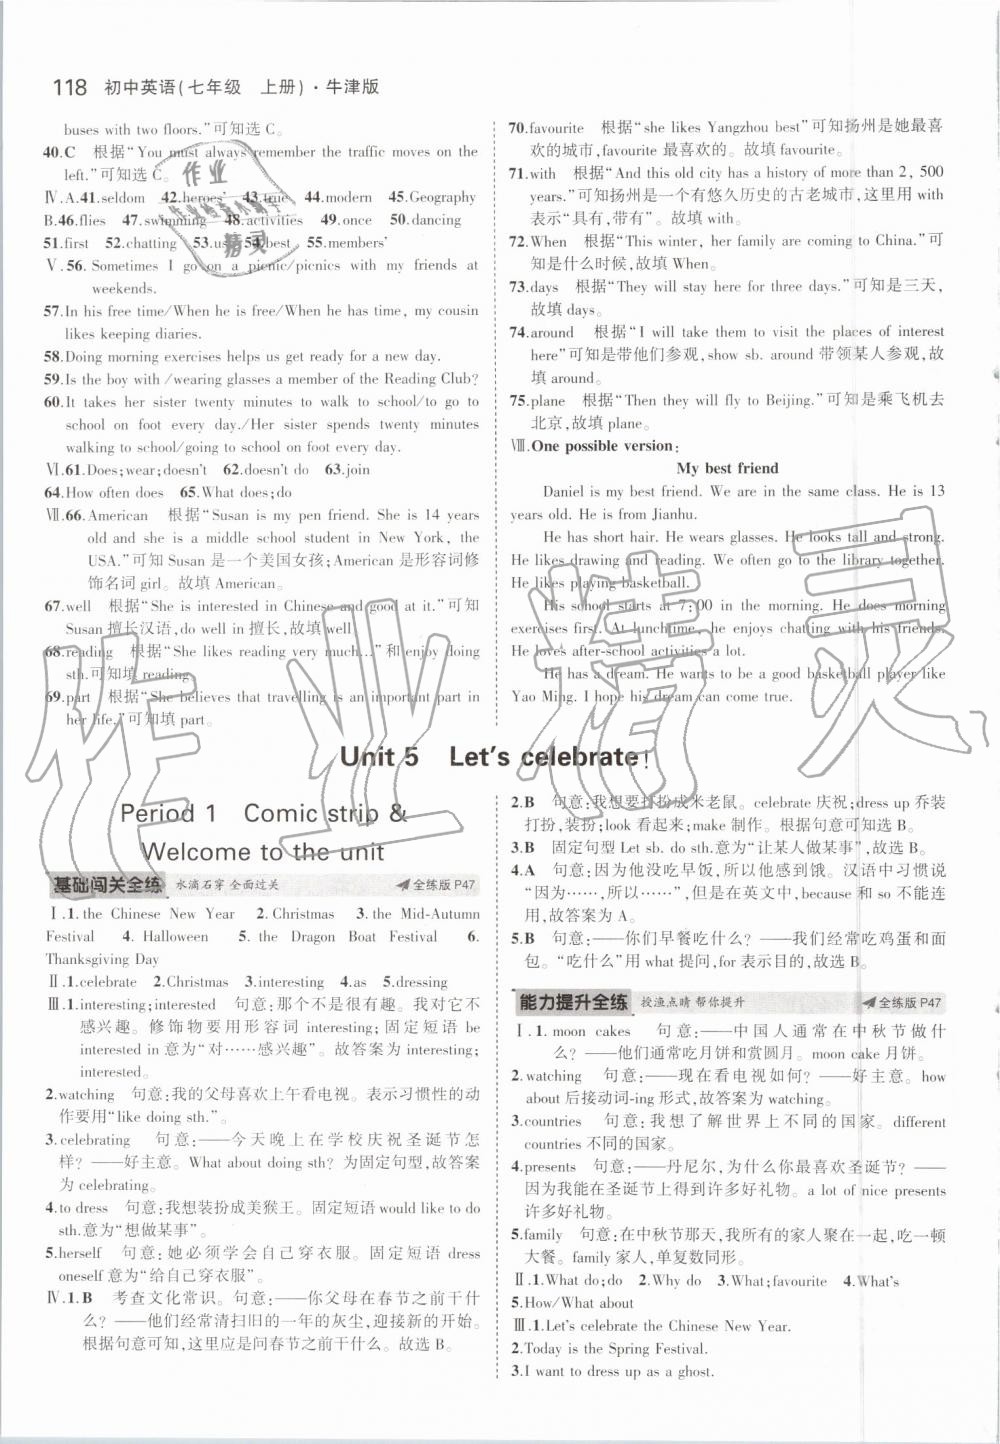 118 初中英语(七年级 上册)·牛津版
buses with two floors.”可知选C。
40.C 根据“You must always remember the traffic moves on the
left.”可知选C。
Ⅳ.A.41.seldom 42.heroes’ 43.true 44.modern 45.Geography
B.46.flies 47.swimming 48.activities 49.once 50.dancing
51.first 52.chatting 53.us 54.best 55.members’
Ⅴ.56. Sometimes I go on a picnic/picnics with my friends at
weekends.
57.In his free time/When he is free/When he has time, my cousin
likes keeping diaries.
58.Doing morning exercises helps us get ready for a new day.
59.Is the boy with /wearing glasses a member of the Reading Club?
60.It takes her sister twenty minutes to walk to school/to go to
school on foot every day./Her sister spends twenty minutes
walking to school/going to school on foot every day.
Ⅵ.61.Does;wear;doesn’t 62.doesn’t do 63.join
64.How often does 65.What does;do
Ⅶ.66.American 根据“Susan is my pen friend. She is 14 years
old and she is a middle school student in New York, the
USA.”可知Susan是一个美国女孩;American是形容词修
饰名词girl。故填American。
67.well 根据“She is interested in Chinese and good at it.”可知
Susan擅长汉语,do well in擅长,故填well。
68.reading 根据“She likes reading very much...”和enjoy doing
sth.可知填reading。
69.part 根据“She believes that travelling is an important part in
her life.”可知填part。
70.favourite 根据“she likes Yangzhou best”可知扬州是她最喜
欢的城市,favourite最喜欢的。故填favourite。
71.with 根据“And this old city has a history of more than 2, 500
years.”可知扬州是一个有悠久历史的古老城市,这里用with
表示“具有,带有”。故填with。
72.When 根据“This winter, her family are coming to China.”可
知是什么时候,故填When。
73.days 根据“They will stay here for three days.”可知是三天,
故填days。
74.around 根据“I will take them to visit the places of interest
here”可知是带他们参观,show sb. around带领某人参观,故
填around。
75.plane 根据“Then they will fly to Beijing.”可知是乘飞机去
北京,故填plane。
Ⅷ.One possible version:
My best friend
Daniel is my best friend. We are in the same class. He is 13
years old. He is from Jianhu.
He has short hair. He wears glasses. He looks tall and strong.
He likes drawing and reading. We often go to the library together.
He likes playing basketball.
His school starts at 7:00 in the morning. He does morning
exercises first. At lunchtime, he enjoys chatting with his friends.
He loves after-school activities a lot.
He has a dream. He wants to be a good basketball player like
Yao Ming. I hope his dream can come true.
Unit 5 Let’s celebrate!
Period 1 Comic strip &
Welcome to the unit
基础闯关全练 水滴石穿 全面过关 全练版P47
Ⅰ.1. the Chinese New Year 2. Christmas 3. the Mid-Autumn
Festival 4. Halloween 5. the Dragon Boat Festival 6.
Thanksgiving Day
Ⅱ.1.celebrate 2.Christmas 3.interesting 4.as 5.dressing
Ⅲ.1.interesting;interested 句意:那个不是很有趣。我对它不
感兴趣。修饰物要用形容词interesting;固定短语be
interested in意为“对……感兴趣”。故答案为interesting;
interested。
2.watching 句意:我的父母喜欢上午看电视。表示习惯性的动
作要用“like doing sth.”。
3.celebrating 句意:——今天晚上在学校庆祝圣诞节怎
样? ——好主意。What about doing sth?为固定句型,故答案
为celebrating。
4.to dress 句意:我想装扮成美猴王。固定短语would like to do
sth.意为“想做某事”。
5.herself 句意:她必须学会自己穿衣服。固定短语dress
oneself意为“给自己穿衣服”。
Ⅳ.1.B 考查文化常识。句意:——你父母在春节之前干什
么? ——他们经常清扫旧的一年的灰尘,迎接新的开始。
根据句意可知,这里应是问春节之前干什么,故选B。
2.B 句意:我想要打扮成米老鼠。celebrate庆祝;dress up乔装
打扮,装扮;look看起来;make制作。根据句意可知选B。
3.B 固定句型Let sb. do sth.意为“让某人做某事”,故选B。
4.A 句意:因为他没吃早饭,所以他感到饿。汉语中习惯说
“因为……,所以……”,但是在英文中,because和so不能连
用,故答案为A。
5.B 句意:——你们早餐吃什么? ——我们经常吃鸡蛋和面
包。“吃什么”用what提问,for表示目的,故答案为B。
能力提升全练 授渔点睛 帮你提升 全练版P47
Ⅰ.1. moon cakes 句意:——中国人通常在中秋节做什
么? ——他们通常吃月饼和赏圆月。moon cake月饼。
2.watching 句意:——现在看电视如何? ——好主意。how
about后接动词-ing形式,故答案为watching。
3.countries 句意:我想了解世界上不同的国家。different
countries不同的国家。
4.presents 句意:——丹尼尔,为什么你最喜欢圣诞节? ——
因为我能在圣诞节上得到许多好礼物。a lot of nice presents
许多好礼物。
5.family 句意:在中秋节那天,我所有的家人聚在一起,吃一顿
大餐。family家人,单复数同形。
Ⅱ.1.What do;do 2.Why do 3.What;favourite 4.What’s
5.How/What about
Ⅲ.1.Let’s celebrate the Chinese New Year.
2.Today is the Spring Festival.
3.I want to dress up as a ghost.
作业精灵